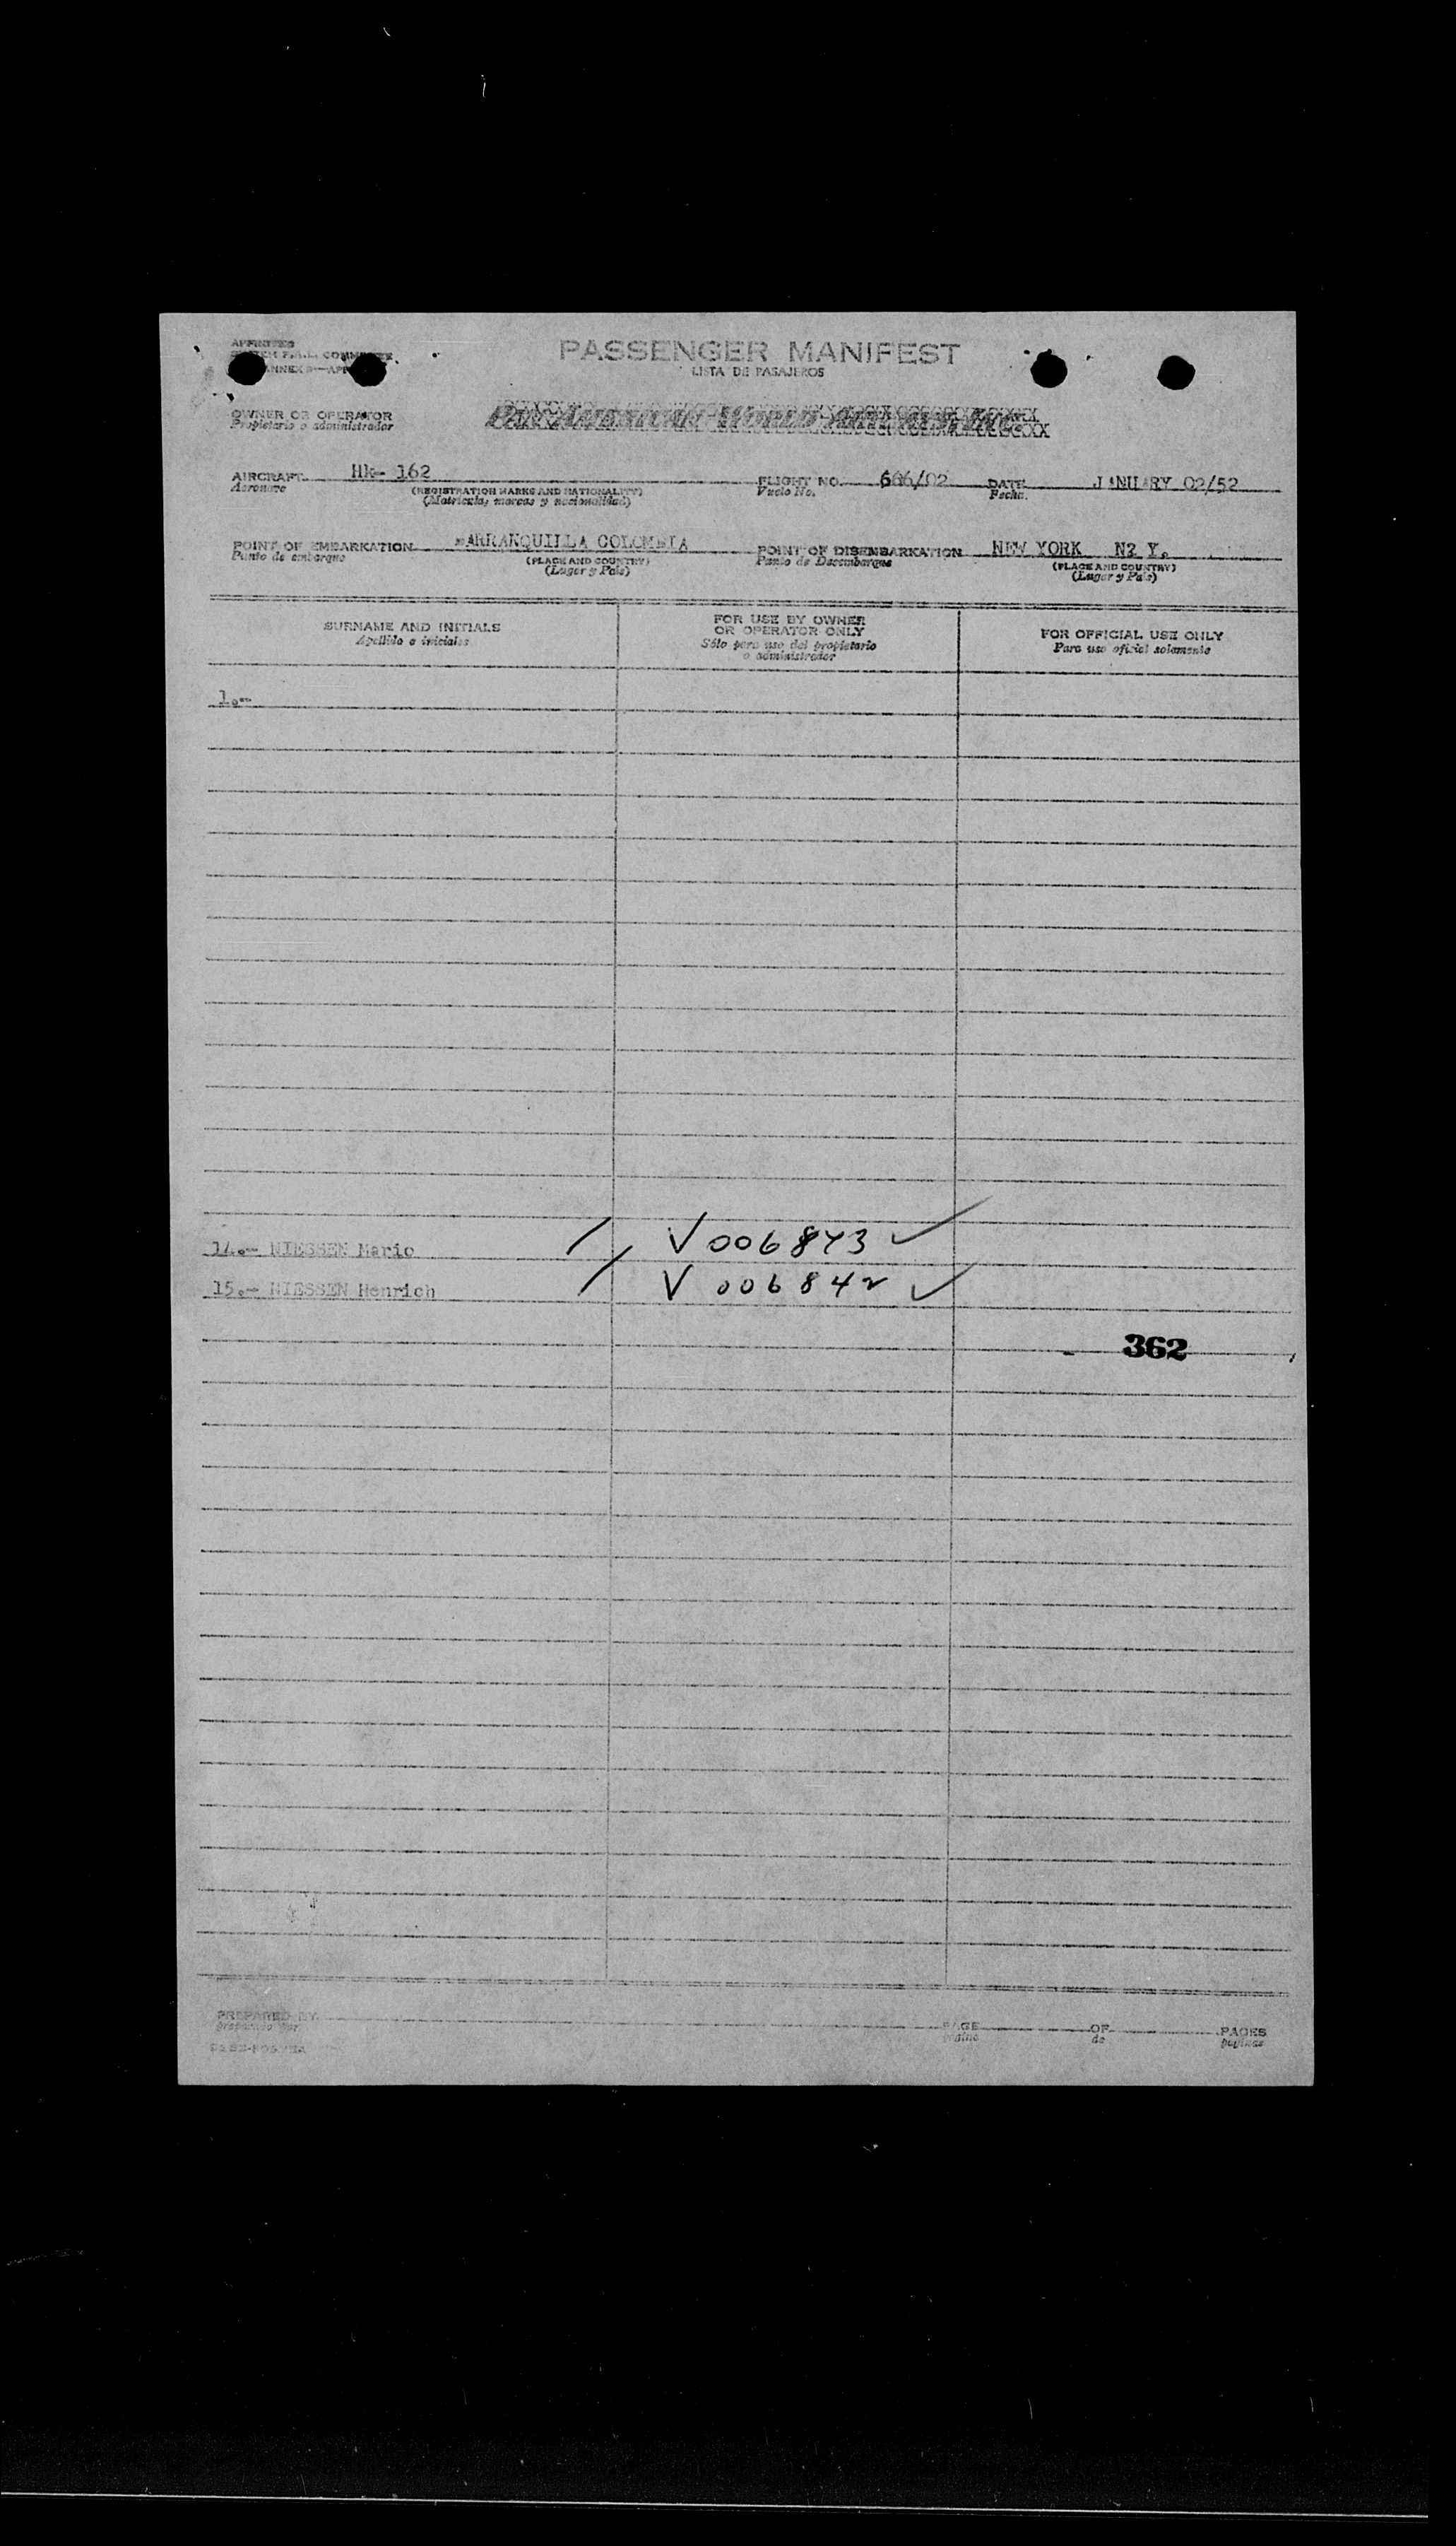 APPROVED
PASSENGER MANIFEST
LISTA DE PASAJEROS
OWNER OR OPERATOR
Propietario o administrador
PAN AMERICAN WORLD AIRWAYS, INC.
AIRCRAFT Hk- 162 FLIGHT NO. 606/02 DATE JANUARY 02/52
Aeronave (REGISTRATION MARKS AND NATIONALITY) Vuelo No. Fecha.
(Matricula, marcas y nacionalidad)
POINT OF EMBARKATION BARRANQUILLA COLOMBIA POINT OF DISEMBARKATION NEW YORK N? Y.
Punto de embarque (PLACE AND COUNTRY) Punto de Desembarque (PLACE AND COUNTRY)
(Lugar y Pais) (Lugar y Pais)
SURNAME AND INITIALS FOR USE BY OWNER OR OPERATOR ONLY FOR OFFICIAL USE ONLY
Apellido e iniciales Sólo para uso del propietario o administrador Para uso oficial solamente
1.-
14.- NIESSEN Mario V 006843
15.- NIESSEN Henrich V 006842
362
PREPARED BY PAGE OF PAGES
preparado por página de páginas